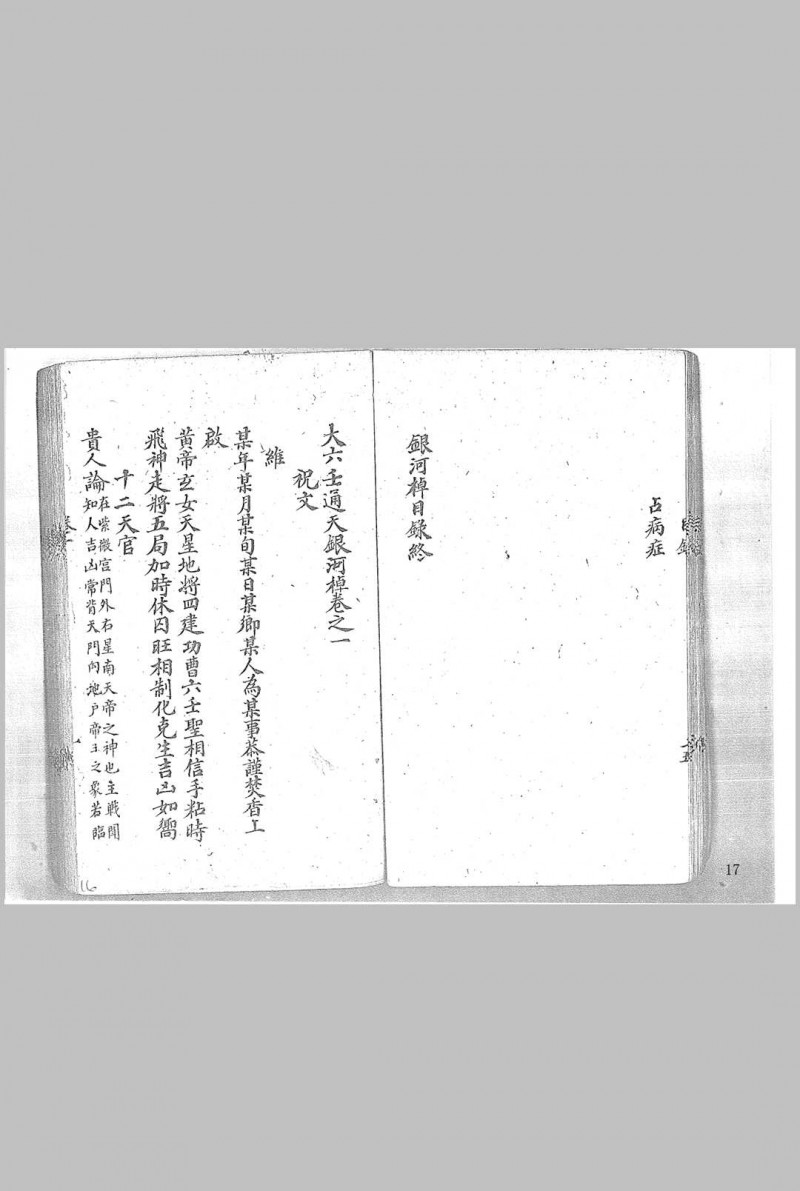 占病症
銀河棹目錄終
大六壬通天銀河棹卷之一
祝文
維
某年某月某旬某日某鄉某人為某事恭謹焚香上
啟
黃帝玄女天星地將四建功曹六壬聖相信手粘時
飛神走將五局加時休囚旺相制化克生吉凶如嚮
十二天官
貴人論
在紫微宮門外右星南天帝之神也主戰鬪
知人吉凶常背天門向地户帝王之象若臨
16
17